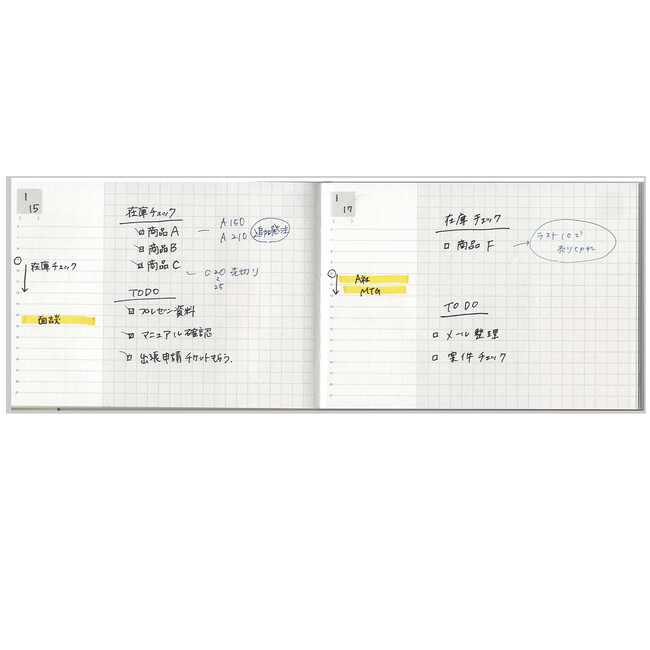 1
15
在庫チェック
商品A
A 150
A 210
追加発注
商品B
商品C
C 20
25
売切り
在庫チェック
TODO
面談
プレゼン資料
マニュアル確認
出張申請チケットもらう.
1
17
在庫チェック
商品 F
ラスト10で
A社
MTG
TODO
メール整理
案件チェック